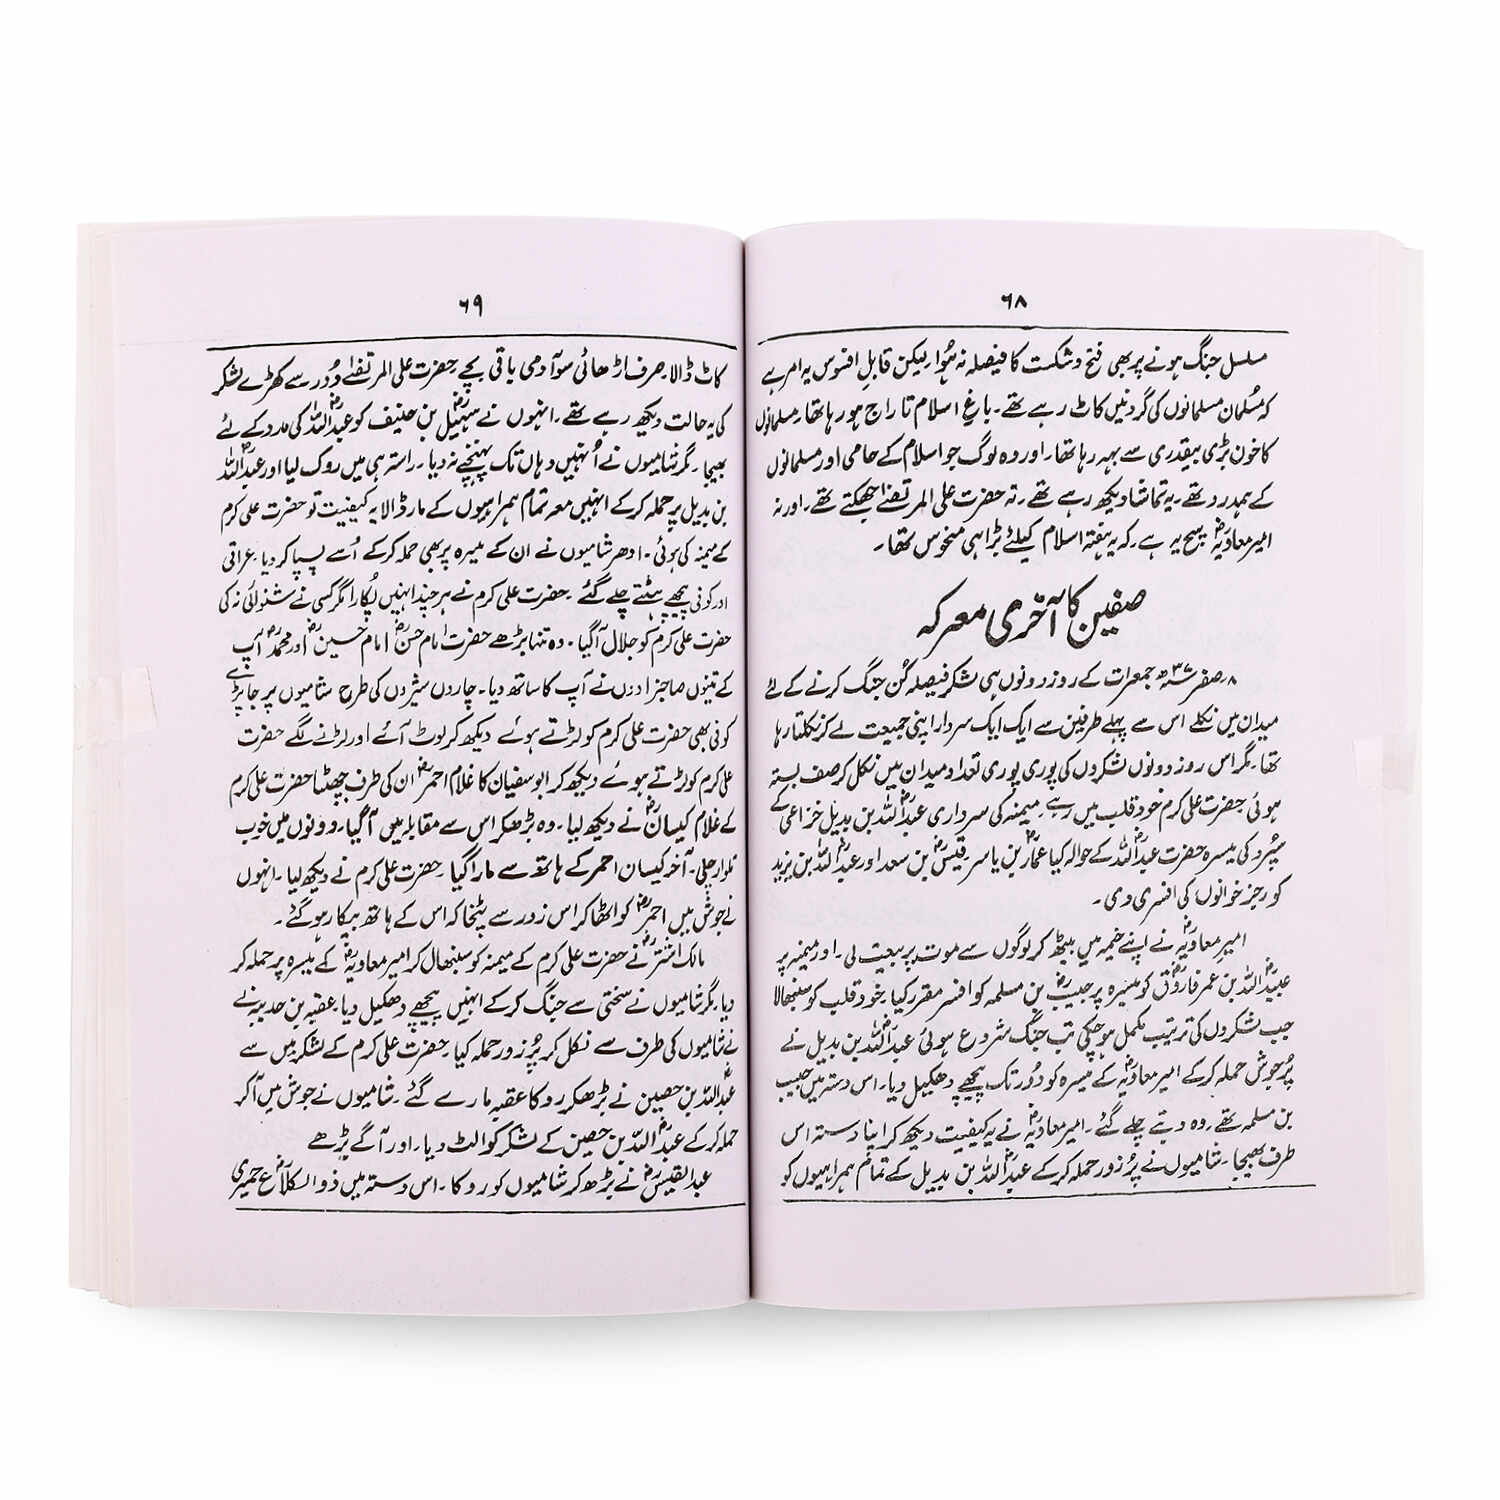 ۶۸
مسلسل جنگ ہونے پر بھی فتح و شکست کا فیصلہ نہ ہُوا۔ لیکن قابلِ افسوس یہ امر ہے
کہ مُسلمان مسلمانوں کی گردنیں کاٹ رہے تھے۔ باغِ اسلام تاراج ہو رہا تھا۔ مسلمانوں
کا خون بڑی بیقدری سے بہہ رہا تھا۔ اور وہ لوگ جو اسلام کے حامی اور مسلمانوں
کے ہمدرد تھے۔ یہ تماشا دیکھ رہے تھے۔ نہ حضرت علی المرتضٰے جھکتے تھے۔ اور نہ
امیر معاویہؓ سچ یہ ہے۔ کہ یہ ہفتہ اسلام کیلئے بڑا ہی منحوس تھا۔
صفین کا آخری معرکہ
۸؍صفر ۳۷ھ جمعرات کے روز دونوں ہی لشکر فیصلہ کُن جنگ کرنے کے لئے
میدان میں نکلے اس سے پہلے طرفین سے ایک ایک سردار اپنی جمیعت لے کر نکلتا رہا
تھا۔ مگر اس روز دونوں لشکروں کی پوری پوری تعداد میدان میں نکل کر صف بستہ
ہوئی حضرت علی کرم خود قلب میں رہے۔ میمنہ کی سرداری عبداللہؓ بن بدیل خزاعی کے
سپُرد کی میسرہ حضرت عبداللہؓ کے حوالہ کیا عمارؓ بن یاسر قیسؓ بن سعد اور عبداللہؓ بن یزید
کو رجز خوانوں کی افسری دی۔
امیر معاویہؓ نے اپنے خیمہ میں بیٹھ کر لوگوں سے موت پر بیعت لی۔ اور میمنہ پر
عبیداللہؓ بن عمر فاروقؓ کو میسرہ پر حبیبؓ بن مسلمہ کو افسر مقرر کیا۔ خود قلب کو سنبھالا
جب لشکروں کی ترتیب مکمل ہو چکی تب جنگ شروع ہوئی عبداللہؓ بن بدیل نے
پُر جوش حملہ کر کے امیر معاویہؓ کے میسرہ کو دُور تک پیچھے دھکیل دیا۔ اس دستہ میں حبیب
بن مسلمہ تھے۔ وہ دبتے چلے گئے۔ امیر معاویہؓ نے یہ کیفیت دیکھ کر اپنا دستہ اس
طرف بھیجا۔ شامیوں نے پُر زور حملہ کر کے عبداللہؓ بن بدیل کے تمام ہمراہیوں کو
۶۹
کاٹ ڈالا۔ صرف اڑھائی سو آدمی باقی بچے۔ حضرت علی المرتضٰے دُور سے کھڑے لشکر
کی یہ حالت دیکھ رہے تھے۔ انہوں نے سہیلؓ بن حنیف کو عبداللہؓ کی مدد کے لئے
بھیجا۔ مگر شامیوں نے اُنہیں وہاں تک پہنچنے نہ دیا۔ راستہ ہی میں روک لیا اور عبداللہؓ
بن بدیل پر حملہ کر کے انہیں معہ تمام ہمراہیوں کے مار ڈالا یہ کیفیت تو حضرت علی کرم
کے میمنہ کی ہوئی۔ ادھر شامیوں نے ان کے میسرہ پر بھی حملہ کر کے اُسے پسپا کر دیا۔ عراقی
اور کوفی پیچھے ہٹتے چلے گئے۔ حضرت علی کرم نے ہر چند انہیں پُکارا مگر کسی نے شنوائی نہ کی
حضرت علی کرم کو جلال آ گیا۔ وہ تنہا بڑھے حضرت امام حسنؓ امام حسینؓ اور محمدؓ آپ
کے تینوں صاحبزادوں نے آپ کا ساتھ دیا۔ چاروں شیروں کی طرح شامیوں پر جا پڑے
کوفی بھی حضرت علی کرم کو لڑتے ہوئے دیکھ کر لوٹ آئے اور لڑنے لگے حضرت
علی کرم کو لڑتے ہوئے دیکھ کر ابو سفیان کا غلام احمرؓ ان کی طرف جھپٹا حضرت علی کرم
کے غلام کیسانؓ نے دیکھ لیا۔ وہ بڑھ کر اس سے مقابلہ میں آ گیا۔ دونوں میں خوب
تلوار چلی۔ آخر کیسان احمر کے ہاتھ سے مارا گیا۔ حضرت علی کرم نے دیکھ لیا۔ انہوں
نے جوش میں احمرؓ کو اٹھا کر اس زور سے پٹخا کہ اس کے ہاتھ بیکار ہو گئے۔
مالک اشترؓ نے حضرت علی کرم کے میمنہ کو سنبھال کر امیر معاویہؓ کے میسرہ پر حملہ کر
دیا۔ مگر شامیوں نے سختی سے جنگ کر کے انہیں پیچھے دھکیل دیا۔ عقبہ بن حدیبہ نے
نے شامیوں کی طرف سے نکل کر پُر زور حملہ کیا۔ حضرت علی کرم کے لشکر میں سے
عبداللہؓ بن حصین نے بڑھ کر روکا عقبہ مارے گئے۔ شامیوں نے جوش میں آ کر
حملہ کر کے عبداللہؓ بن حصین کے لشکر کو الٹ دیا۔ اور آگے بڑھے
عبدالقیسؓ نے بڑھ کر شامیوں کو روکا۔ اس دستہ میں ذوالکلاعؓ حمیری